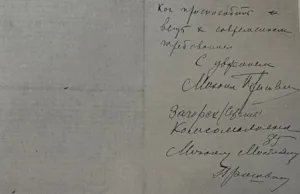 Как приспособить
к современным
требованиям
С уважением
Михаил Пришвин
Загорск
Комсомольская
Михаилу Михайловичу
Пришвину